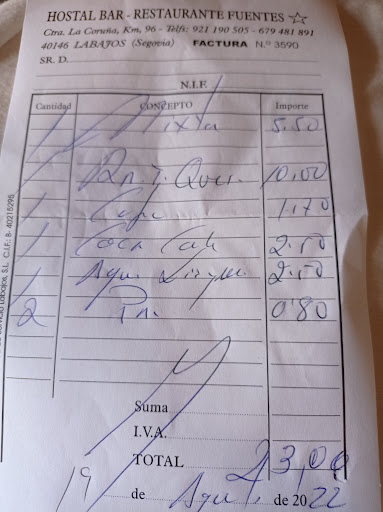 HOSTAL BAR - RESTAURANTE FUENTES
Ctra. La Coruña, Km, 96 - Telfs: 921 190 505 - 679 481 891
40146 LABAJOS (Segovia) FACTURA N.º 3590
SR. D.
N.I.F.
Cantidad CONCEPTO Importe
1 Mixta 5.50
10,00
1 Cafe 1.70
1 Coca Cola
1 Agua
2 Pan 0'80
Suma
I.V.A.
TOTAL 23,00
19 de Agosto de 2022
Labajos, S.L. C.I.F.: B- 40215295